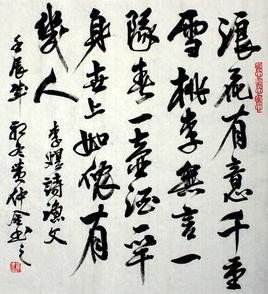 浪花有意千重
雪桃李無言一
隊春一壺酒一竿
身世上如儂有
幾人
李煜詩漁父
壬辰年 黄仲金书之